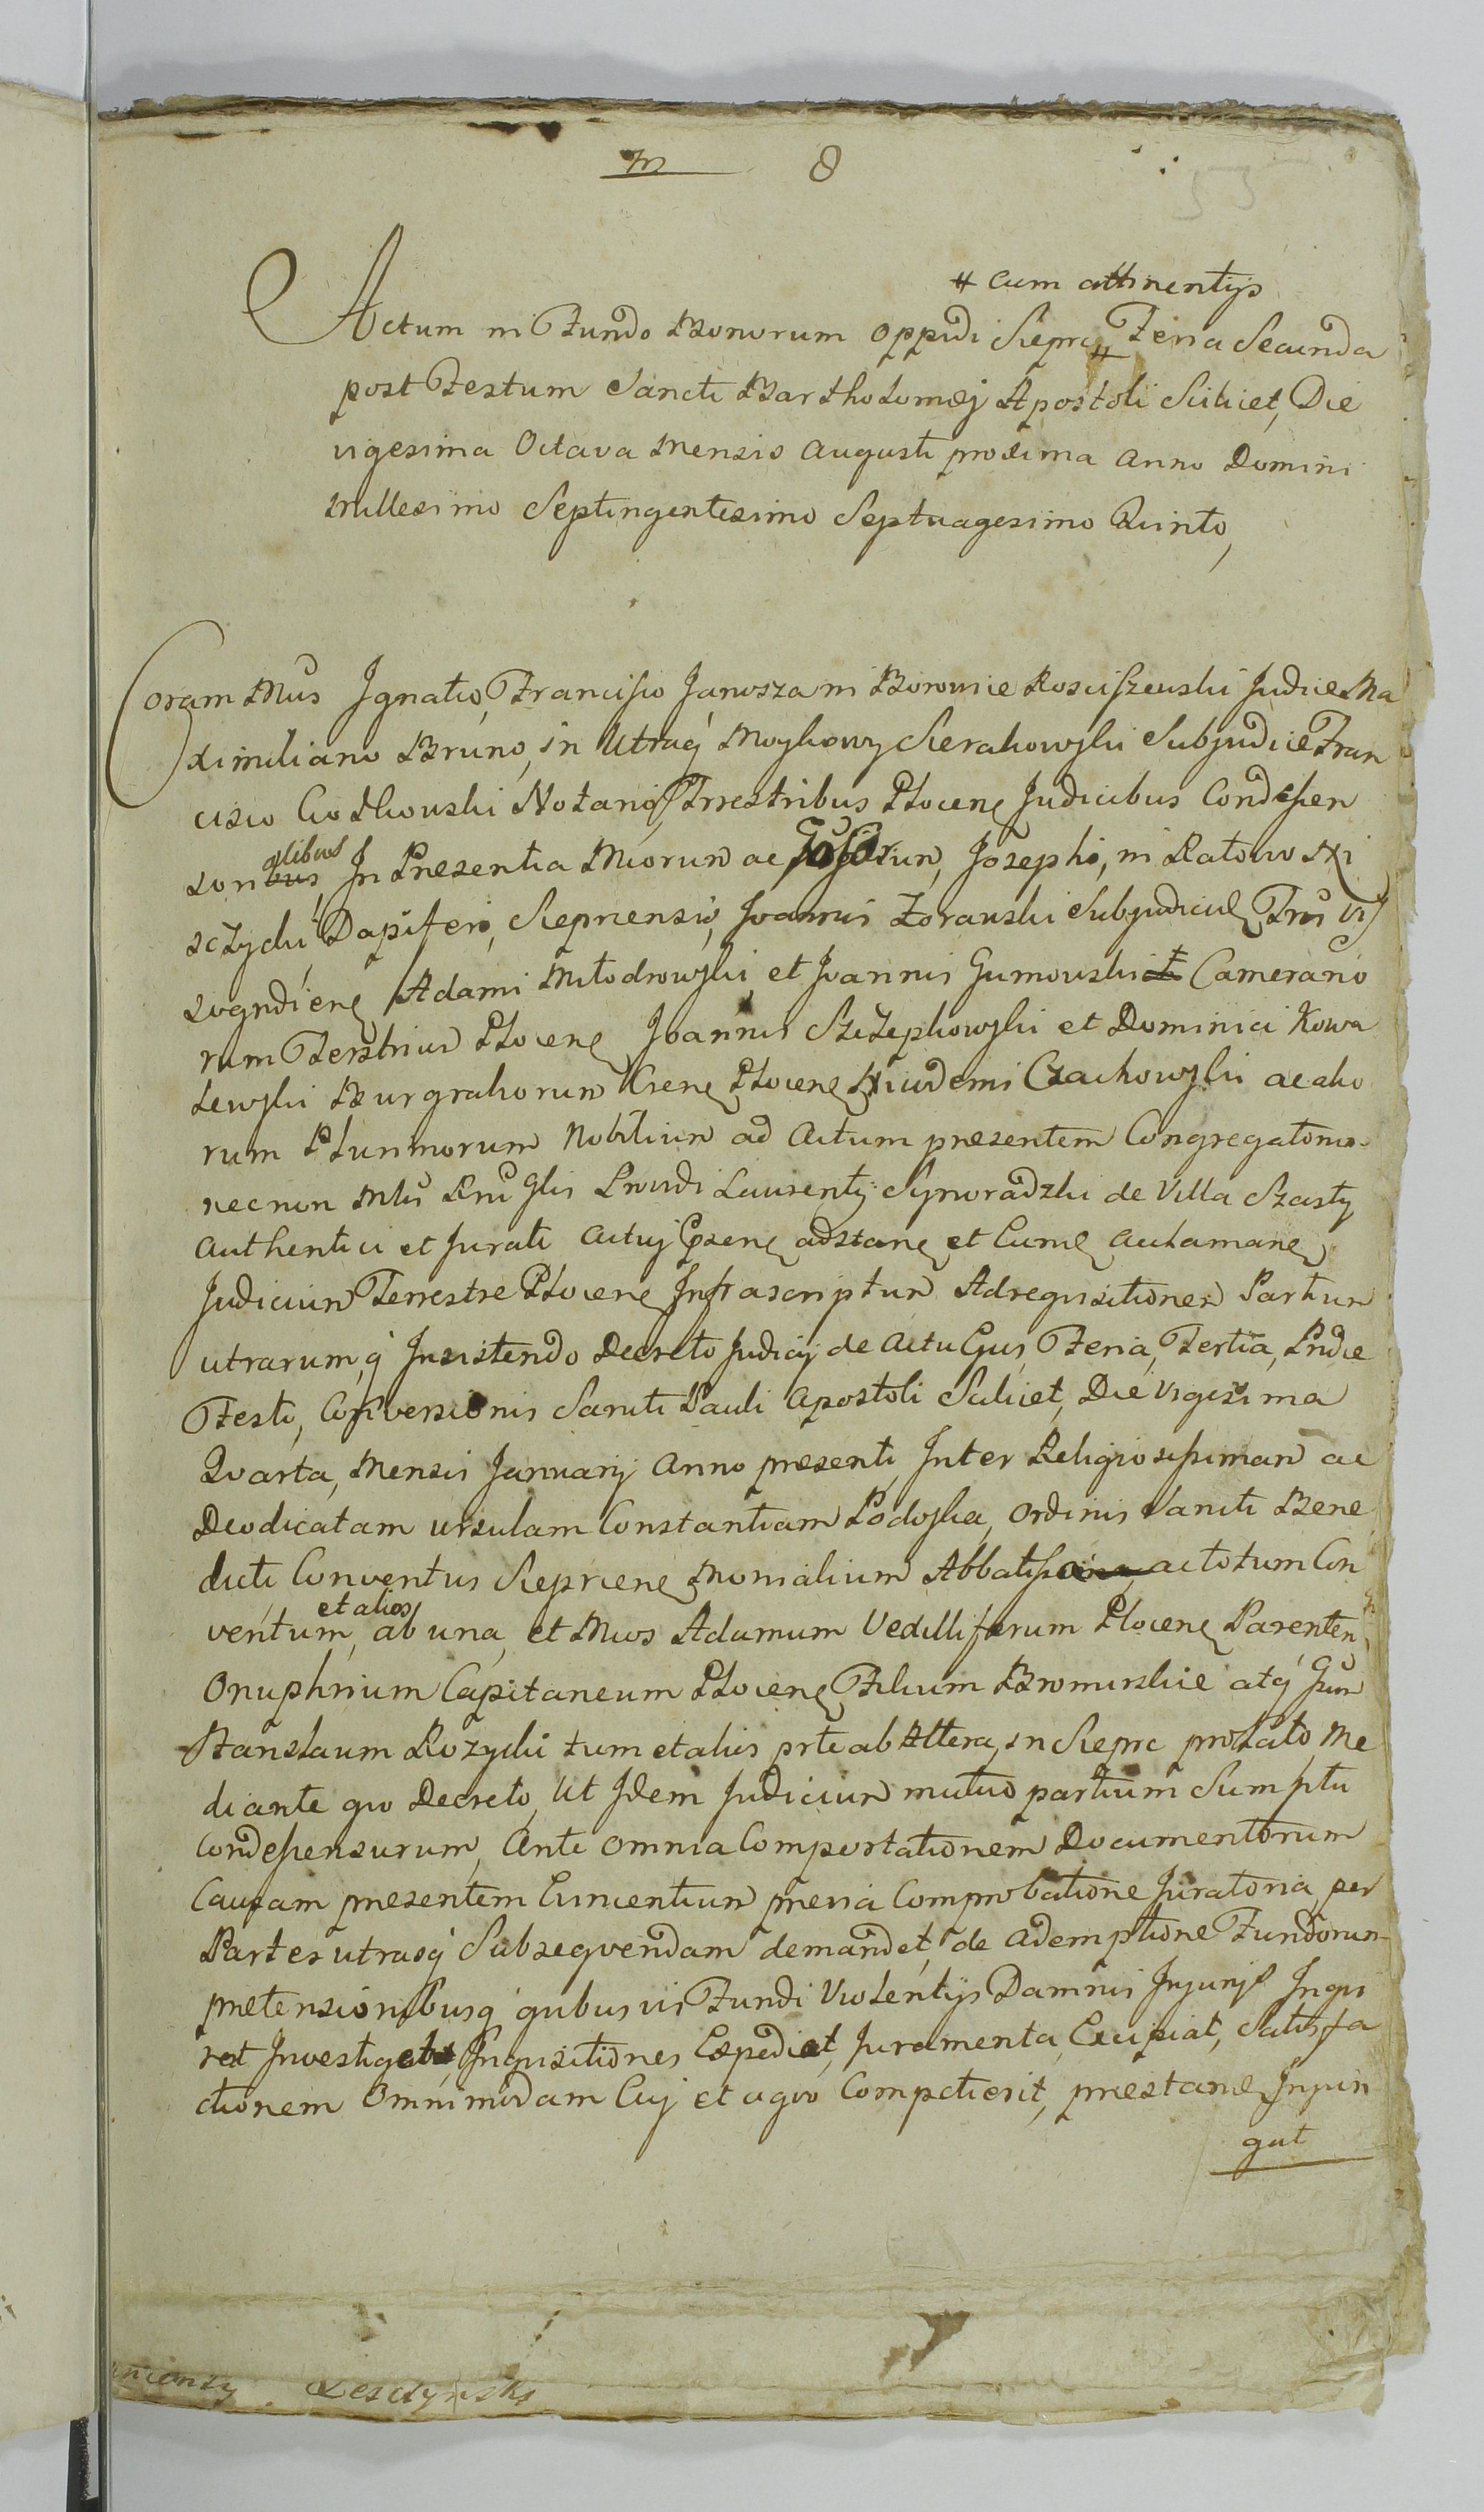 m 8
# cum attinentijs
Actum in Fundo Bonorum Oppidi Sieprc # Feria Secunda
post Festum Sancti Bartholomæj Apostoli Scilicet, Die
vigesima Octava Mensis Augusti proxima Anno Domini
Millesimo Septingentesimo Septuagesimo Quinto,
Coram Mcis Ignatio, Francisco Janosza in Borowice Rosciszewski Judice Ma
ximiliano Bruno, in Utraq Moykowy Sierakowski Subjudice Fran
cisco Godlewski Notario, Trrestribus Plocen Judicibus Condescen
sorialibus, In Presentia Mcorum ac Gsorum, Josephi, in Ratowo
Dapiferi, Sieprcensis, Joannis Zorawski Subjudicis
Adami Mlodzowski, et Joannis Gumowski Camerario
rum Terstrium Plocen Joannis Szczepkowski et Dominici Kowa
lewski Burgrabiorum Plocen Czachowski ac alio
rum Plurimorum Nobilium ad Actum presentem Congregatorum
necnon Mlis Rni Glis Providi Laurentij Synoradzki de Villa Szasty
Authentici et Jurati Actuj Psenti adstane et Eume Aulamane
Judicium Terrestre Plocen Infrascriptum Adrequisitionem Partium
utrarumq Insistendo Decreto Judicij de Actu Ejus, Feria, Tertia, Pridie
Festi, Conversionis Sancti Pauli Apostoli Scilicet, Die Vigesima
Quarta, Mensis Januarij Anno presenti, Inter Religiosissimam ac
Deodicatam Ursulam Constantiam Podoska, Ordinis Sancti Bene
dicti Conventus Sieprcene Monialium Abbatissam, ac totum Con
ventum, et alios ab una, et Mcos Adamum Vexilliferum Plocen Parentem
Onuphrium Capitaneum Plocen Filium Bromirskie atq Gsum
Stanislaum Rozycki tum et aliis prte ab Altera, in Sieprc prolato, Me
diante quo Decreto, Ut Idem Judicium mutuo partium Sumptu
Condescensurum, Ante Omnia Comportationem Documentorum
Causam presentem Concernentium previa Comprobatione Juratoria per
Partes utrasq Subsequendam demandet, de Ademptione Fundorum
pretensionibusq quibusvis Fundi Violentijs Damnis Injurijs Inqui
rat Investiget, Inquisitiones Expediat, Juramenta, Excipiat, Satisfa
ctionem Omnimodam Cuj et a quo Competierit, prestand Injun
gat
Lesczynski